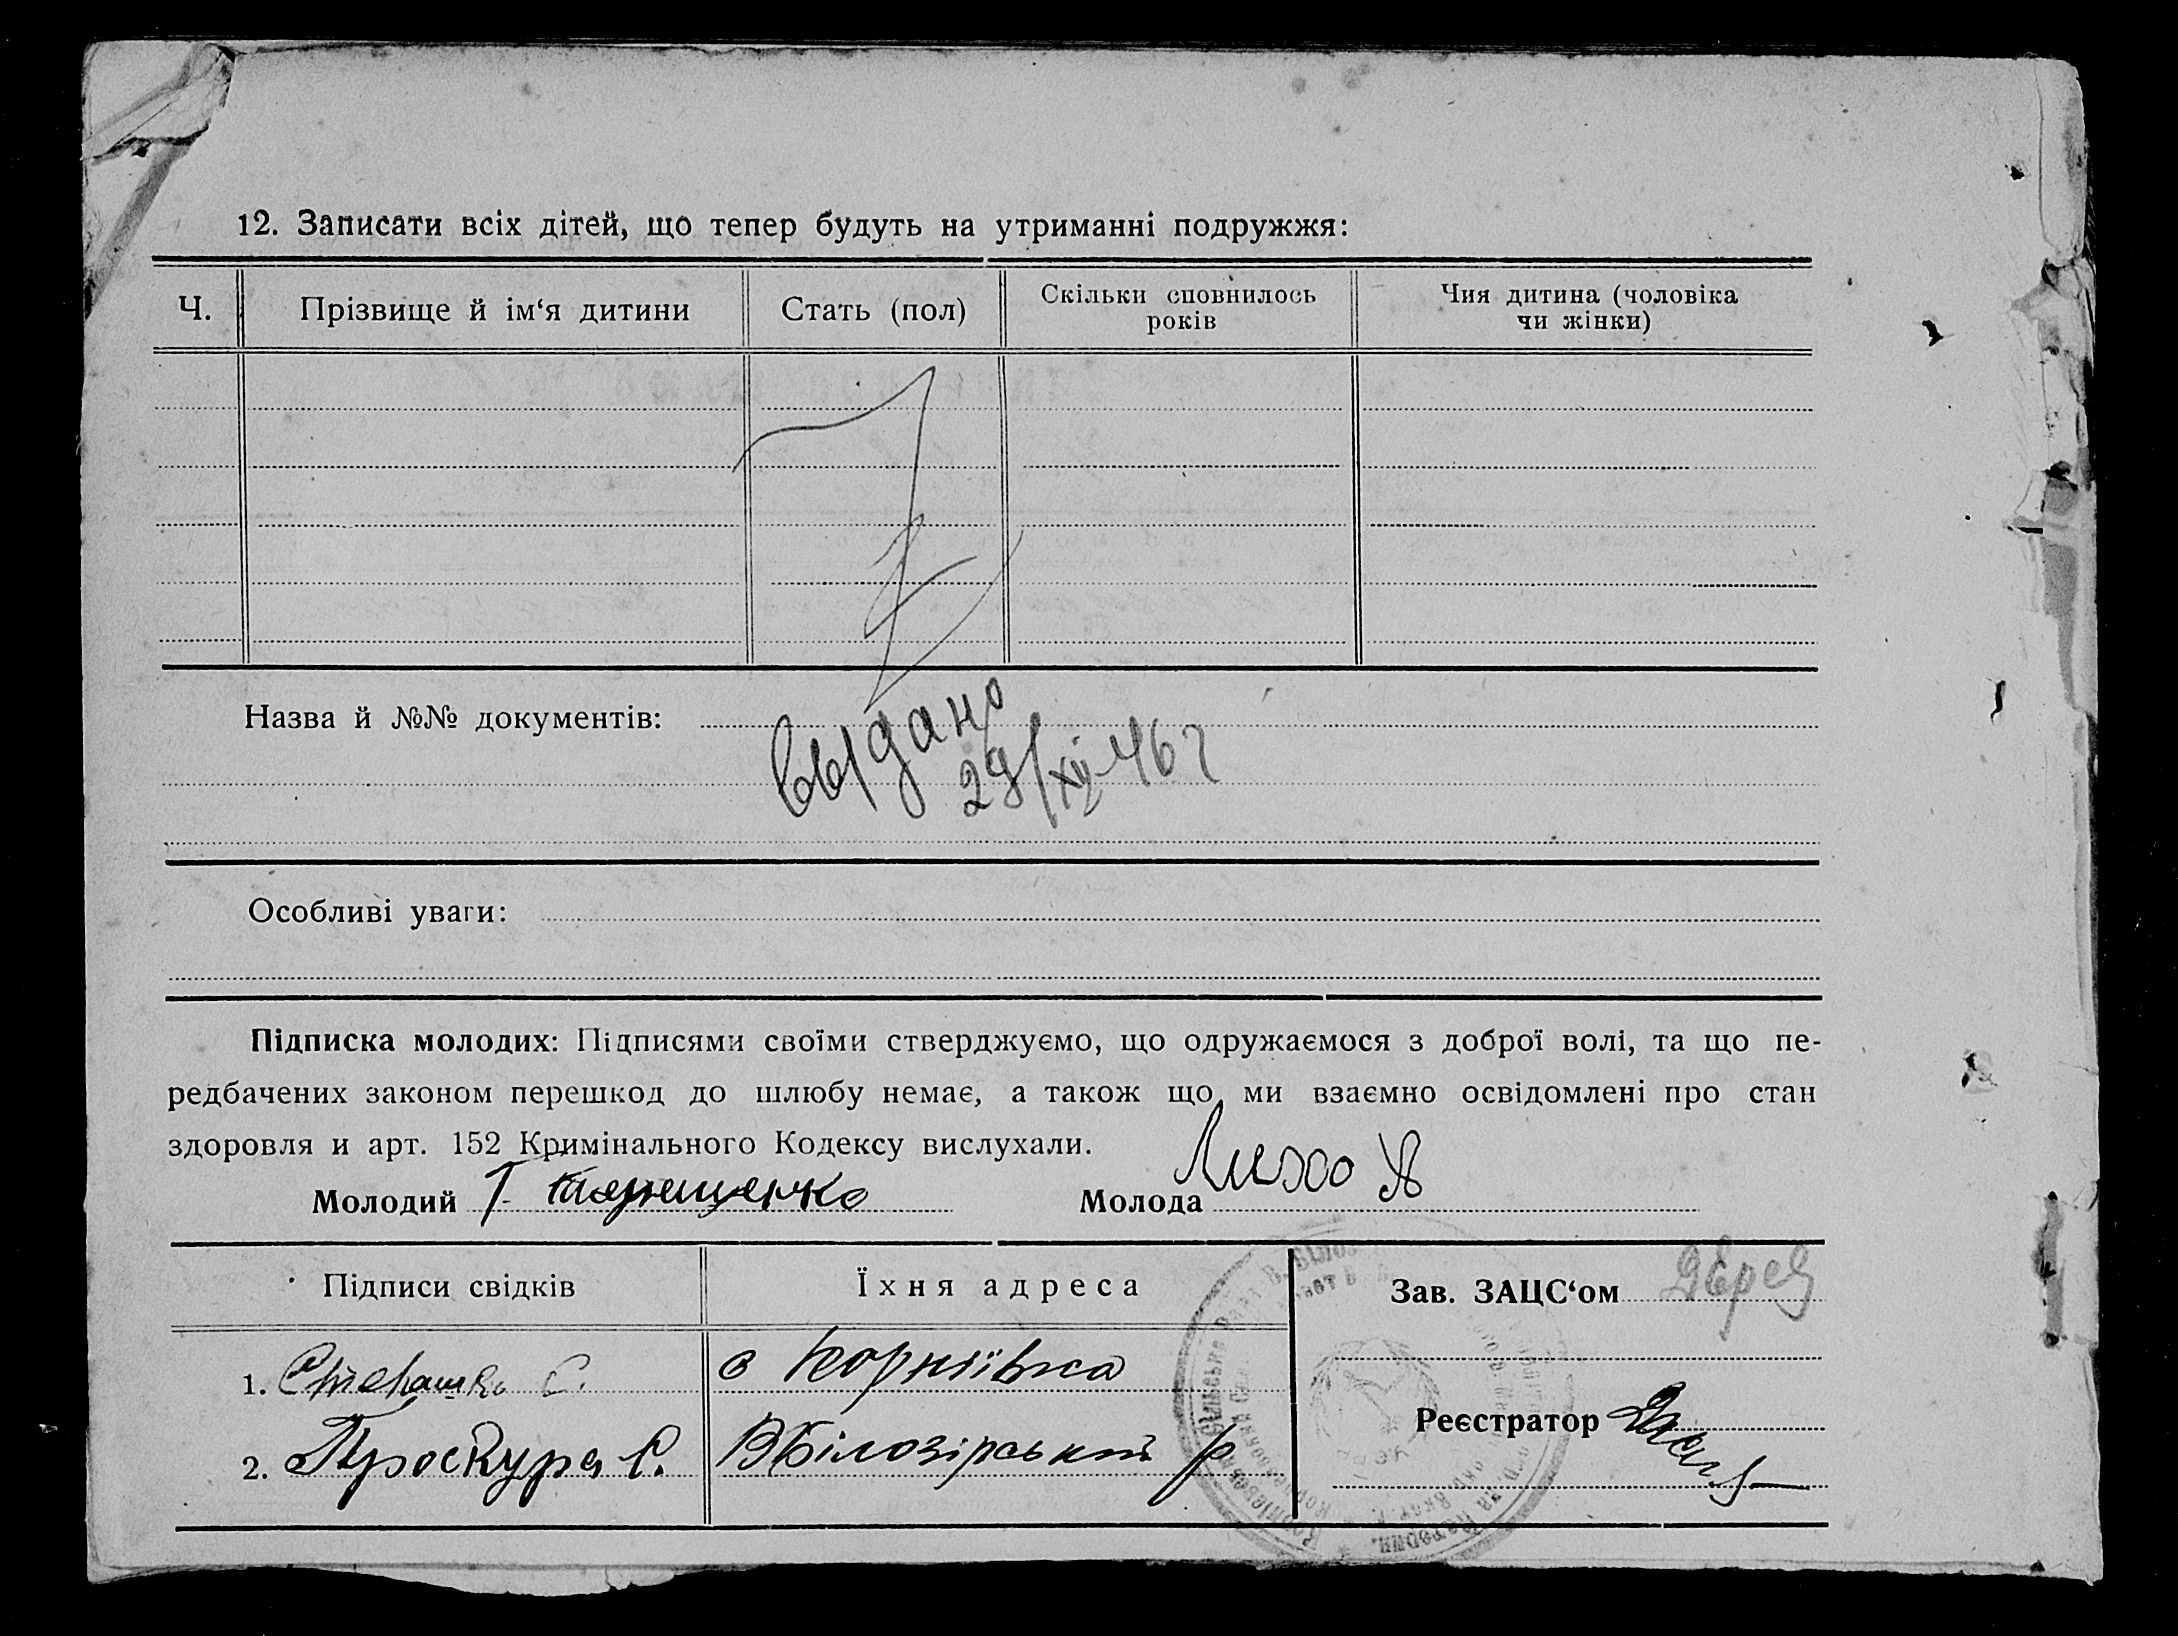 12. Записати всіх дітей, що тепер будуть на утриманні подружжя:
Ч. Прізвище й ім‘я дитини Стать (пол) Скільки сповнилось років Чия дитина (чоловіка чи жінки)
Назва й №№ документів:
выдано
29/XII-46 г
Особливі уваги:
Підписка молодих: Підписями своїми стверджуємо, що одружаємося з доброї волі, та що пе-
редбачених законом перешкод до шлюбу немає, а також що ми взаємно освідомлені про стан
здоровля и арт. 152 Кримінального Кодексу вислухали.
Молодий Т. Терещенко Молода Лихо Я
Підписи свідків Їхня адреса Зав. ЗАЦС‘ом
1. Степашко С. с Корніївка
Реєстратор
2. Проскура С. ВБілозірський р